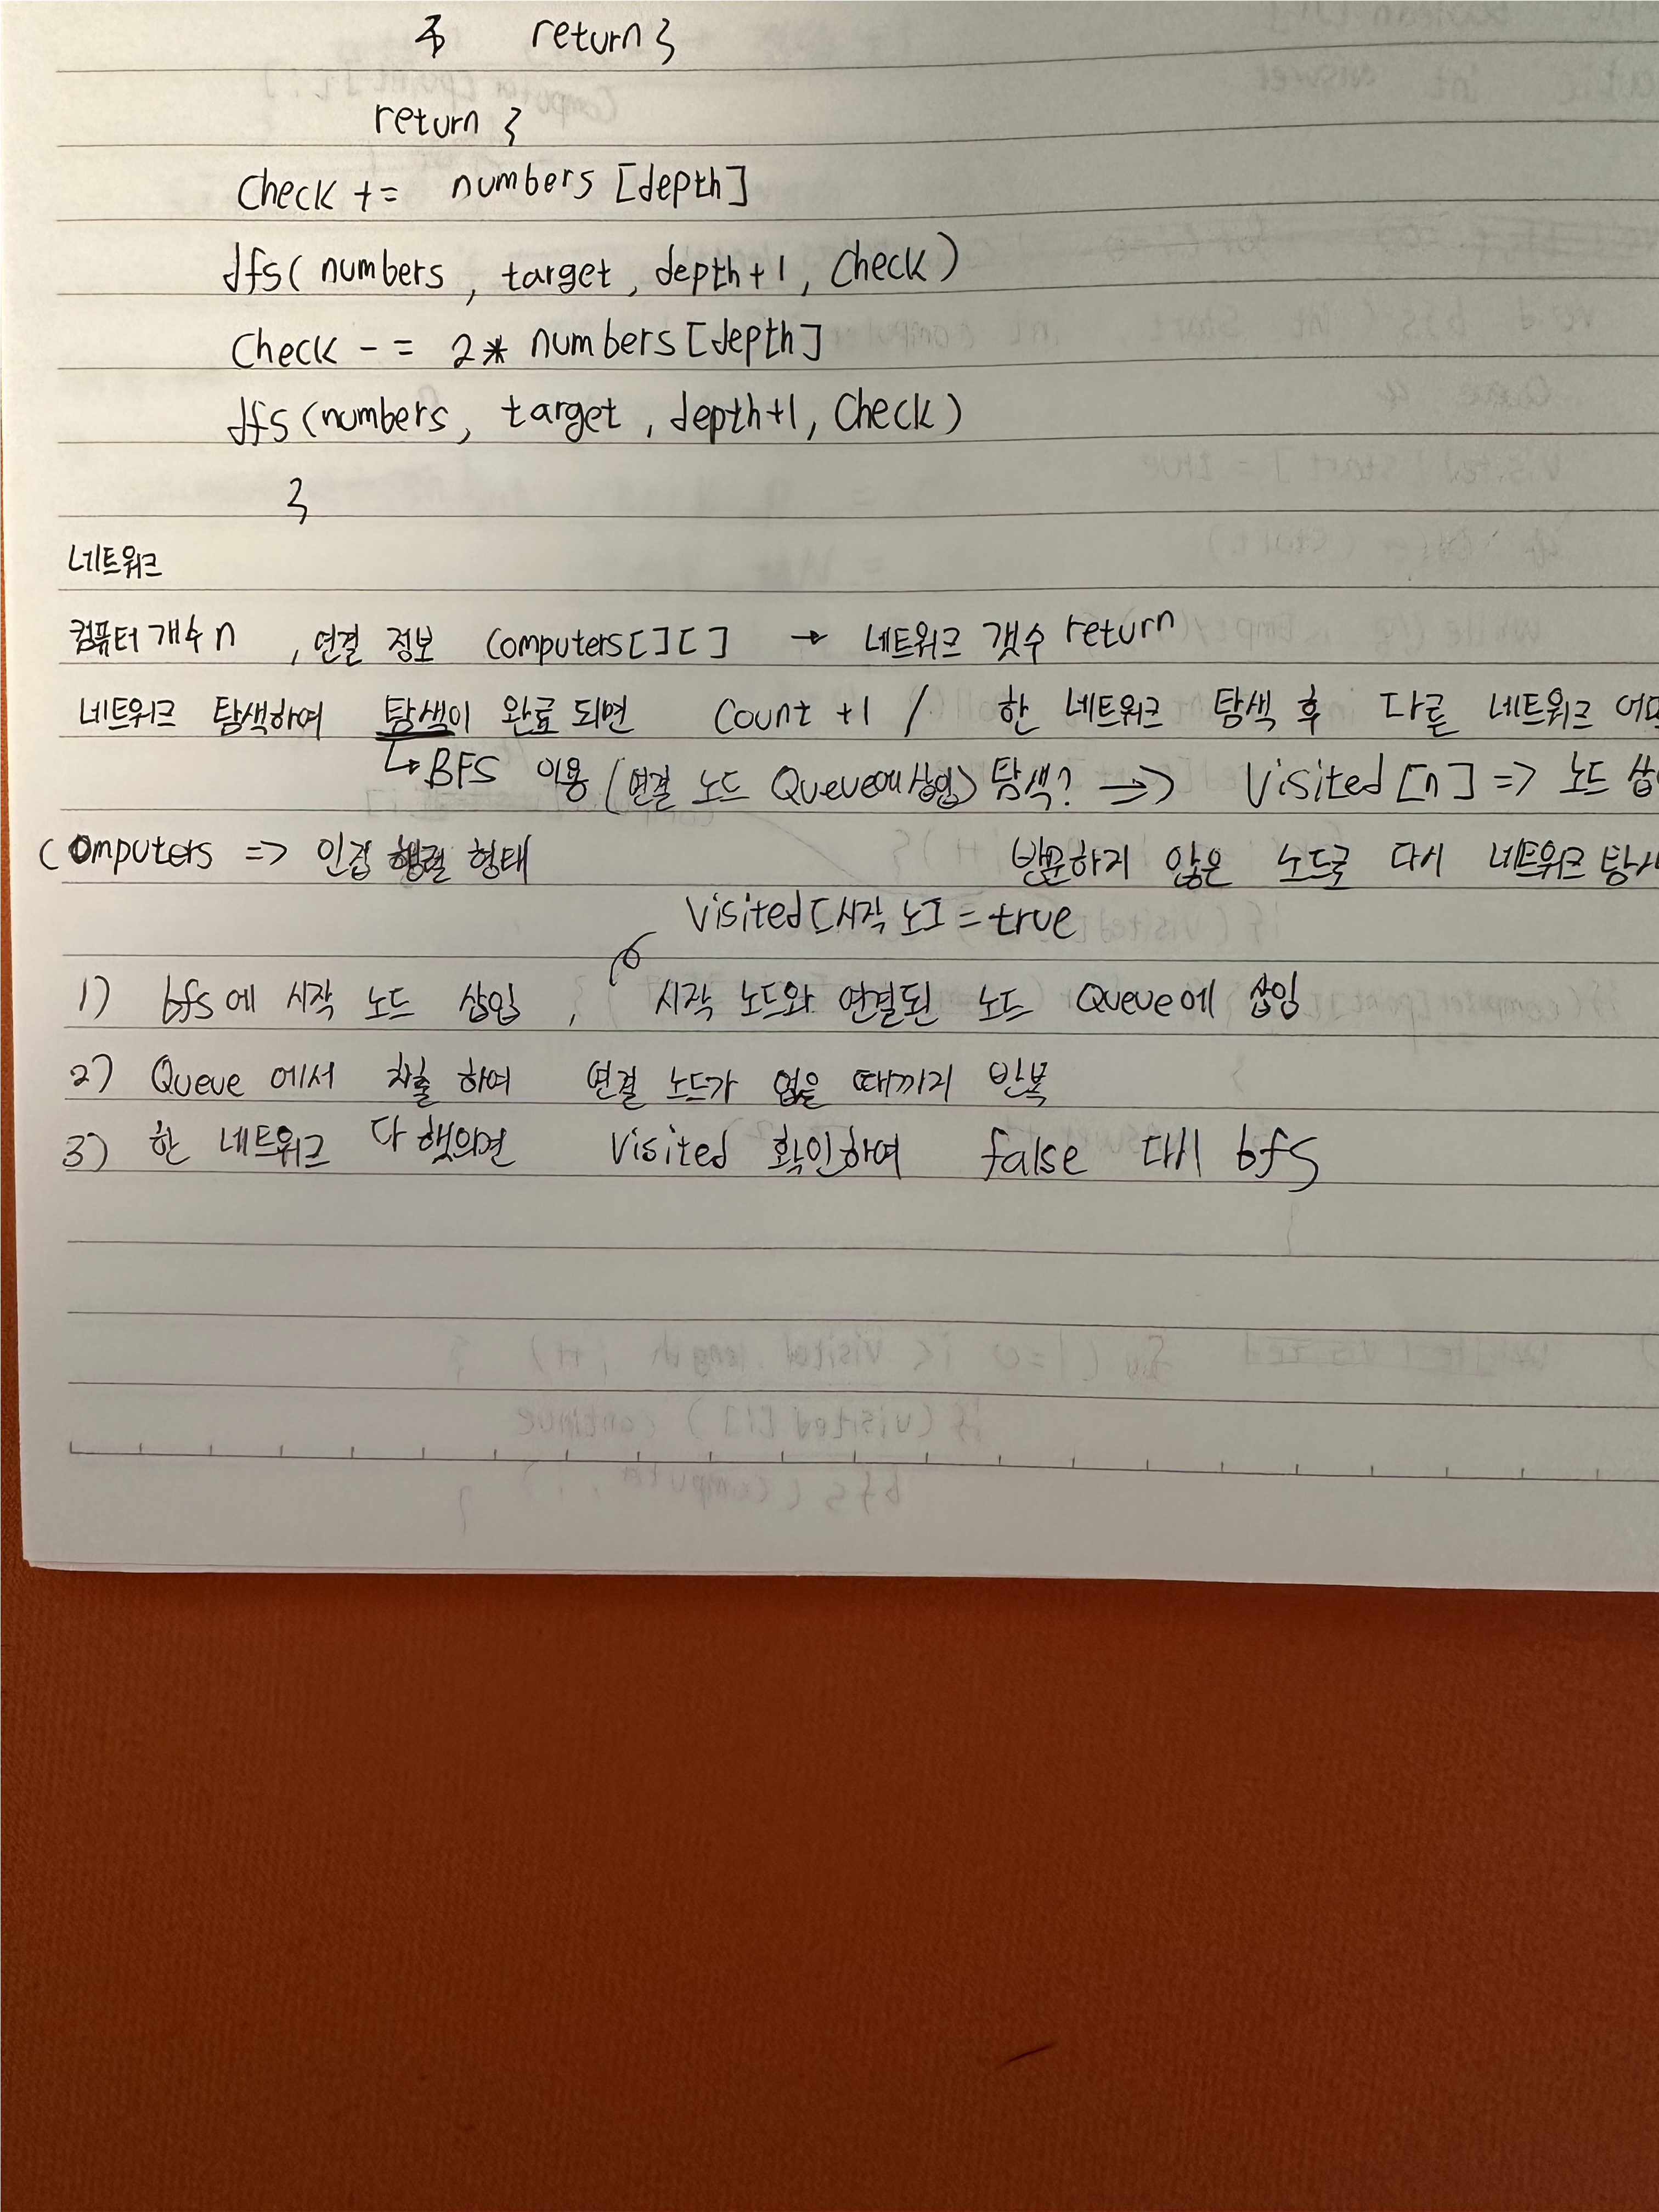 return }
return }
Check += numbers [depth]
dfs( numbers , target , depth+1 , Check )
Check -= 2* numbers [depth]
dfs (numbers, target , depth+1, Check )
}
네트워크
컴퓨터 개수 n , 연결 정보 Computers[ ][ ] → 네트워크 갯수 return
네트워크 탐색하여 탐색이 완료 되면 Count +1 / 한 네트워크 탐색 후 다른 네트워크
↳ BFS 이용 (연결 노드 Queue에 삽입) 탐색? => Visited [n] => 노드
Computers => 인접 행렬 형태 방문하지 않은 노드로 다시 네트워크
Visited[시작 노] = true
1) bfs에 시작 노드 삽입 , 시작 노드와 연결된 노드 Queue에 삽입
2) Queue 에서 차출 하여 연결 노드가 없을 때까지 반복
3) 한 네트워크 다 했의면 Visited 확인하여 false 다시 bfs